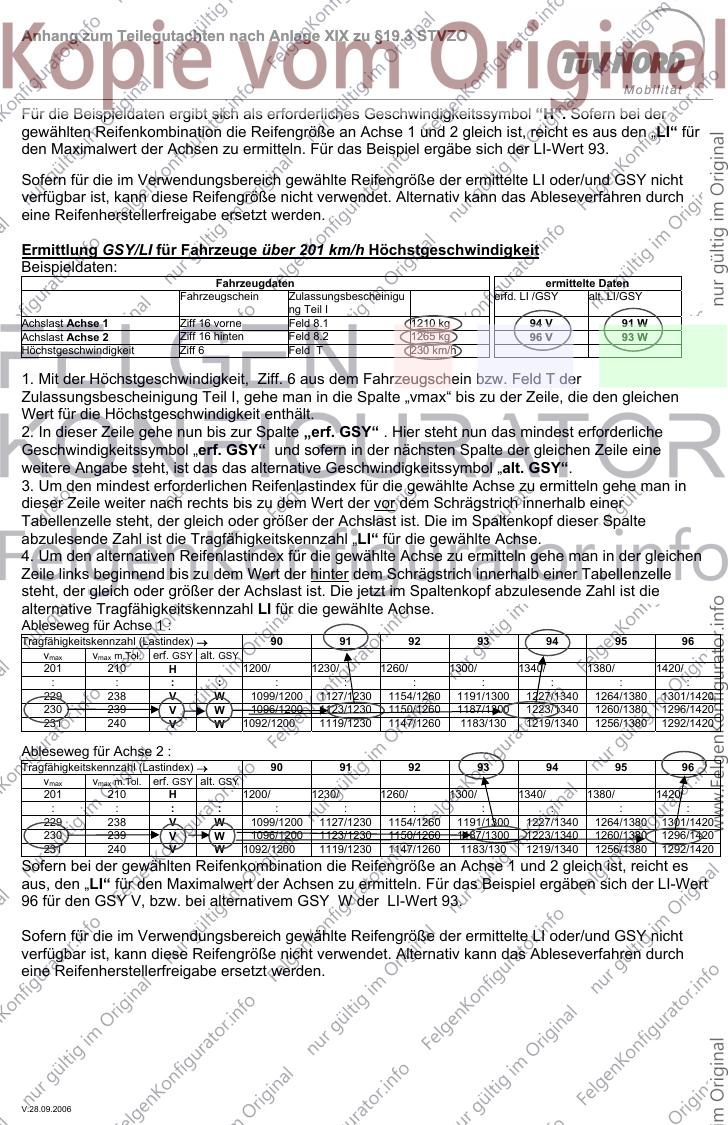 Anhang zum Teilegutachten nach Anlage XIX zu §19.3 STVZO
Kopie vom Original
TÜV NORD
Mobilität
Für die Beispieldaten ergibt sich als erforderliches Geschwindigkeitssymbol “H“. Sofern bei der
gewählten Reifenkombination die Reifengröße an Achse 1 und 2 gleich ist, reicht es aus den „LI“ für
den Maximalwert der Achsen zu ermitteln. Für das Beispiel ergäbe sich der LI-Wert 93.
Sofern für die im Verwendungsbereich gewählte Reifengröße der ermittelte LI oder/und GSY nicht
verfügbar ist, kann diese Reifengröße nicht verwendet. Alternativ kann das Ableseverfahren durch
eine Reifenherstellerfreigabe ersetzt werden.
Ermittlung GSY/LI für Fahrzeuge über 201 km/h Höchstgeschwindigkeit
Beispieldaten:
Fahrzeugdaten ermittelte Daten
Fahrzeugschein Zulassungsbescheinigu erfd. LI /GSY alt. LI/GSY
ng Teil I
Achslast Achse 1 Ziff 16 vorne Feld 8.1 1210 kg 94 V 91 W
Achslast Achse 2 Ziff 16 hinten Feld 8.2 1265 kg 96 V 93 W
Höchstgeschwindigkeit Ziff 6 Feld T 230 km/h
1. Mit der Höchstgeschwindigkeit, Ziff. 6 aus dem Fahrzeugschein bzw. Feld T der
Zulassungsbescheinigung Teil I, gehe man in die Spalte „vmax“ bis zu der Zeile, die den gleichen
Wert für die Höchstgeschwindigkeit enthält.
2. In dieser Zeile gehe nun bis zur Spalte „erf. GSY“ . Hier steht nun das mindest erforderliche
Geschwindigkeitssymbol „erf. GSY“ und sofern in der nächsten Spalte der gleichen Zeile eine
weitere Angabe steht, ist das das alternative Geschwindigkeitssymbol „alt. GSY“.
3. Um den mindest erforderlichen Reifenlastindex für die gewählte Achse zu ermitteln gehe man in
dieser Zeile weiter nach rechts bis zu dem Wert der vor dem Schrägstrich innerhalb einer
Tabellenzelle steht, der gleich oder größer der Achslast ist. Die im Spaltenkopf dieser Spalte
abzulesende Zahl ist die Tragfähigkeitskennzahl „LI“ für die gewählte Achse.
4. Um den alternativen Reifenlastindex für die gewählte Achse zu ermitteln gehe man in der gleichen
Zeile links beginnend bis zu dem Wert der hinter dem Schrägstrich innerhalb einer Tabellenzelle
steht, der gleich oder größer der Achslast ist. Die jetzt im Spaltenkopf abzulesende Zahl ist die
alternative Tragfähigkeitskennzahl LI für die gewählte Achse.
FELGEN
KONFIGURATOR
FelgenKonfigurator.info
Ableseweg für Achse 1 :
Tragfähigkeitskennzahl (Lastindex) → 90 91 92 93 94 95 96
vmax vmax m.Tol. erf. GSY alt. GSY
201 210 H 1200/ 1230/ 1260/ 1300/ 1340/ 1380/ 1420/
: : : : : : : : : : :
229 238 V W 1099/1200 1127/1230 1154/1260 1191/1300 1227/1340 1264/1380 1301/1420
230 239 V W 1096/1200 1123/1230 1150/1260 1187/1300 1223/1340 1260/1380 1296/1420
231 240 V W 1092/1200 1119/1230 1147/1260 1183/130 1219/1340 1256/1380 1292/1420
Ableseweg für Achse 2 :
Tragfähigkeitskennzahl (Lastindex) → 90 91 92 93 94 95 96
vmax vmax m.Tol. erf. GSY alt. GSY
201 210 H 1200/ 1230/ 1260/ 1300/ 1340/ 1380/ 1420/
: : : : : : : : : : :
229 238 V W 1099/1200 1127/1230 1154/1260 1191/1300 1227/1340 1264/1380 1301/1420
230 239 V W 1096/1200 1123/1230 1150/1260 1187/1300 1223/1340 1260/1380 1296/1420
231 240 V W 1092/1200 1119/1230 1147/1260 1183/130 1219/1340 1256/1380 1292/1420
Sofern bei der gewählten Reifenkombination die Reifengröße an Achse 1 und 2 gleich ist, reicht es
aus, den „LI“ für den Maximalwert der Achsen zu ermitteln. Für das Beispiel ergäben sich der LI-Wert
96 für den GSY V, bzw. bei alternativem GSY W der LI-Wert 93.
Sofern für die im Verwendungsbereich gewählte Reifengröße der ermittelte LI oder/und GSY nicht
verfügbar ist, kann diese Reifengröße nicht verwendet. Alternativ kann das Ableseverfahren durch
eine Reifenherstellerfreigabe ersetzt werden.
V:28.09.2006
nur gültig im Original
www.FelgenKonfigurator.info